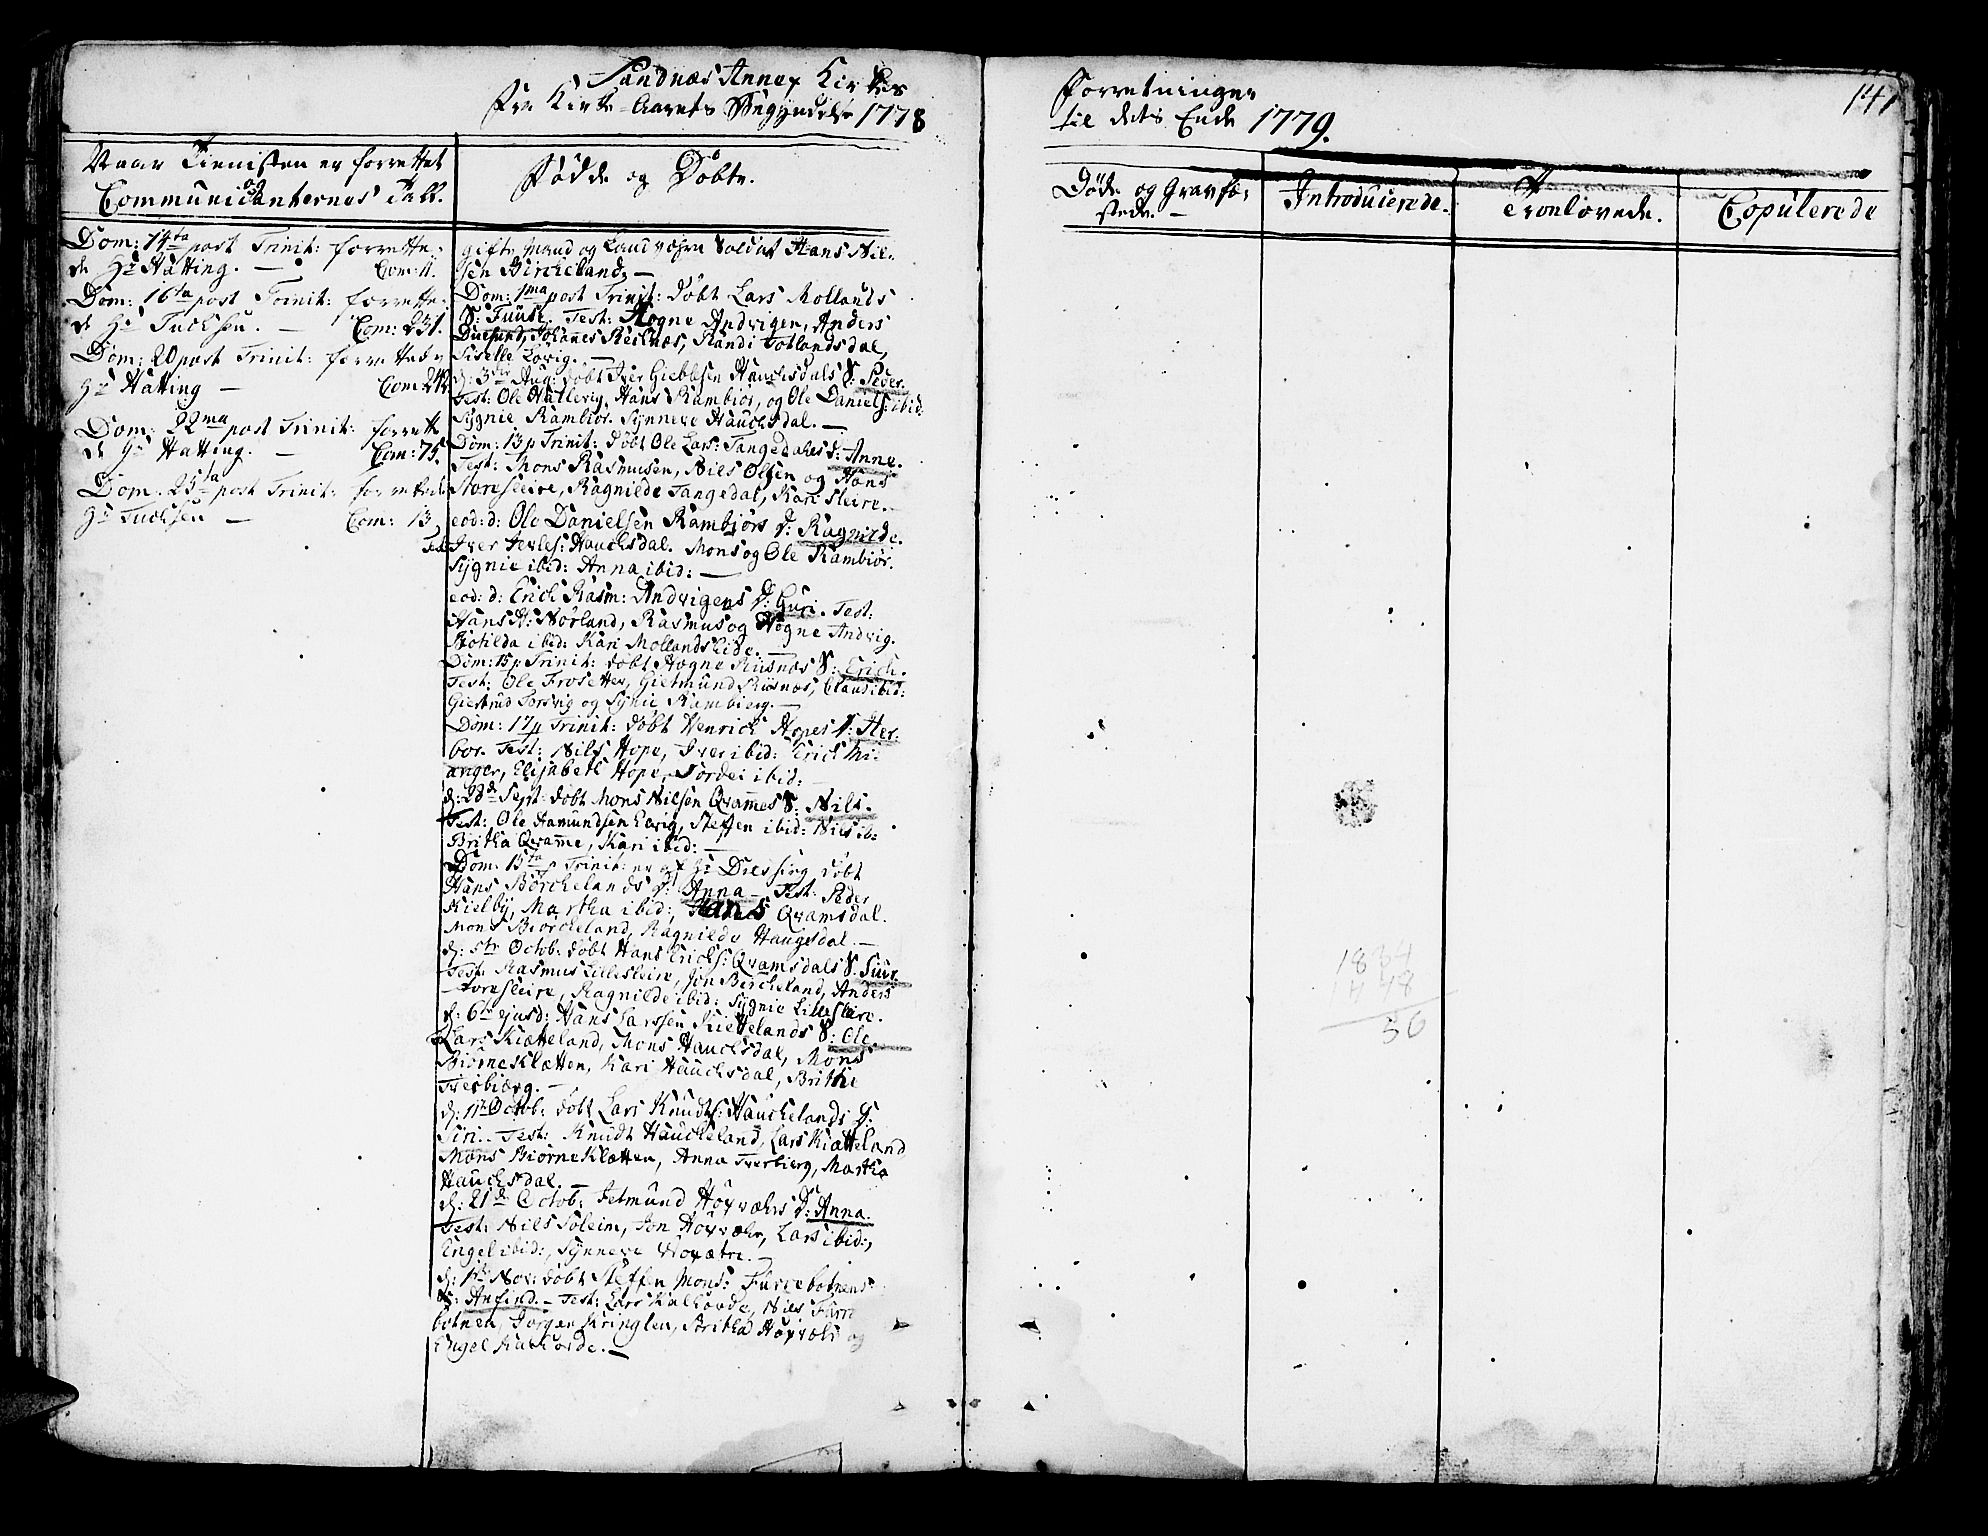 Sandnæs Annex Kirkes
Forretninger
147
Fra Kirke-Aarets Begyndelse 1778
til dets Ende 1779.
Naar Tienisten er forrettet
og
Communicanternes Tall.
Fødde og Døbte.
Døde og Gravfæ-
stede.
Introducerede.
Trolovede.
Copulerede
Dom: 14ta post Trinit: forrette-
de Hr Hatting. — Com: 11.
Dom: 16ta post Trinit: forrette-
de Hr Tuchsen. — Com: 231.
Dom: 20 post Trinit: forrettede
Hr Hatting — Com 242
Dom: 22ma post Trinit: forrette
de Hr Hatting. — Com: 75.
Dom. 25ta post Trinit: forrettede
Hr Tuchsen — Com: 13
gifte Mand og Landværn Soldat Hans Nil-
sen Bircheland. —
Dom: 1ma post Trinit: døbt Lars Mollands
S: Tuuse. Test: Hogne Andvigen, Anders
Duesund, Johannes Reisnæs, Randi Totlandsdal,
Siselle Lovig. —
d: 3die Aug: døbt Iver Giebbsen Hauchsdals S: Peder.
Test: Ole Hatlevig, Hans Rambiør, og Ole Daniels: ibid:
Sygnie Rambiør. Synneve Hauchsdal. —
Dom: 13 p Trinit: døbt Ole Lars: Tangedahls D: Anne.
Test: Mons Rasmusen, Nils Olsen og Hans
Storesleire, Ragnilde Tangedal, Kari Sleire. —
eod: d: Ole Danielsen Rambiørs D: Ragnilde.
Test Iver Jevles: Hauchsdal. Mons og Ole Rambiør.
Sygnie ibid: Anna ibid: —
eod: d: Erich Rasm: Andvigens D: Guri. Test:
Hans H: Nørland, Rasmus og Hogne Andvig.
Botilda ibid: Kari Mollandslide. —
Dom: 15 p Trinit: døbt Hogne Riisnæs S: Erich.
Test: Ole Frosetter, Gietmund Riisnæs, Claus ibid:
Giertrud Torsvig og Synie Rambierg. —
Dom: 17 p Trinit: døbt Henrich Hopes D: Her-
bor. Test: Nils Hope, Iver ibid: Erich Mi-
anger, Elisabeth Hope, Tordei ibid: —
d: 28de Sept: døbt Mons Nilsen Qvammes S: Nils.
Test: Ole Hamundsen Evig, Steffen ibid: Nils ib:
Britha Qvamme, Kari ibid: —
Dom: 15ta p Trinit: er af Hr Diessing døbt
Hans Børchelands D: Anna — Test: Peder
Kielby, Martha ibid:, Hans Qvamsdal.
Mons Biørcheland, Ragnilde Haugsdal. —
d: 5te Octob: døbt Hans Erichs: Qvamsdals S. Siur
Test: Rasmus Lillesleire, Jon Bircheland, Anders
Storesleire, Ragnilde ibid: Sygnie Lillesleire.
d: 6te ejusd: Hans Larssen Kiettelands S: Ole.
Lars Kiætteland, Mons Hauchsdal, Mons
Biørneklætten, Kari Hauchsdal, Brithe
Tverbiærg. —
d: 11te Octob: døbt Lars Knudts: Hauchelands D:
Siri. Test: Knudt Haucheland, Lars Kiætteland
Mons Biørneklætten, Anna Tverbierg, Martha
Hauchsdal. —
d: 21de Octob: Jetmund Høyvæhrs D: Anna.
Test: Nils Soleim, Jon Høyvæhr, Lars ibid:,
Engel ibid:, Synneve Høysætre. —
d: 1te Nov: døbt Steffen Mons: Furrebotnens
S: Anfind. — Test: Lars Kalhovde, Nils Furre
botnen, Jørgen Kringlen, Britha Høyvæhr og
Engel Kalhovde. —
1834
1778
56